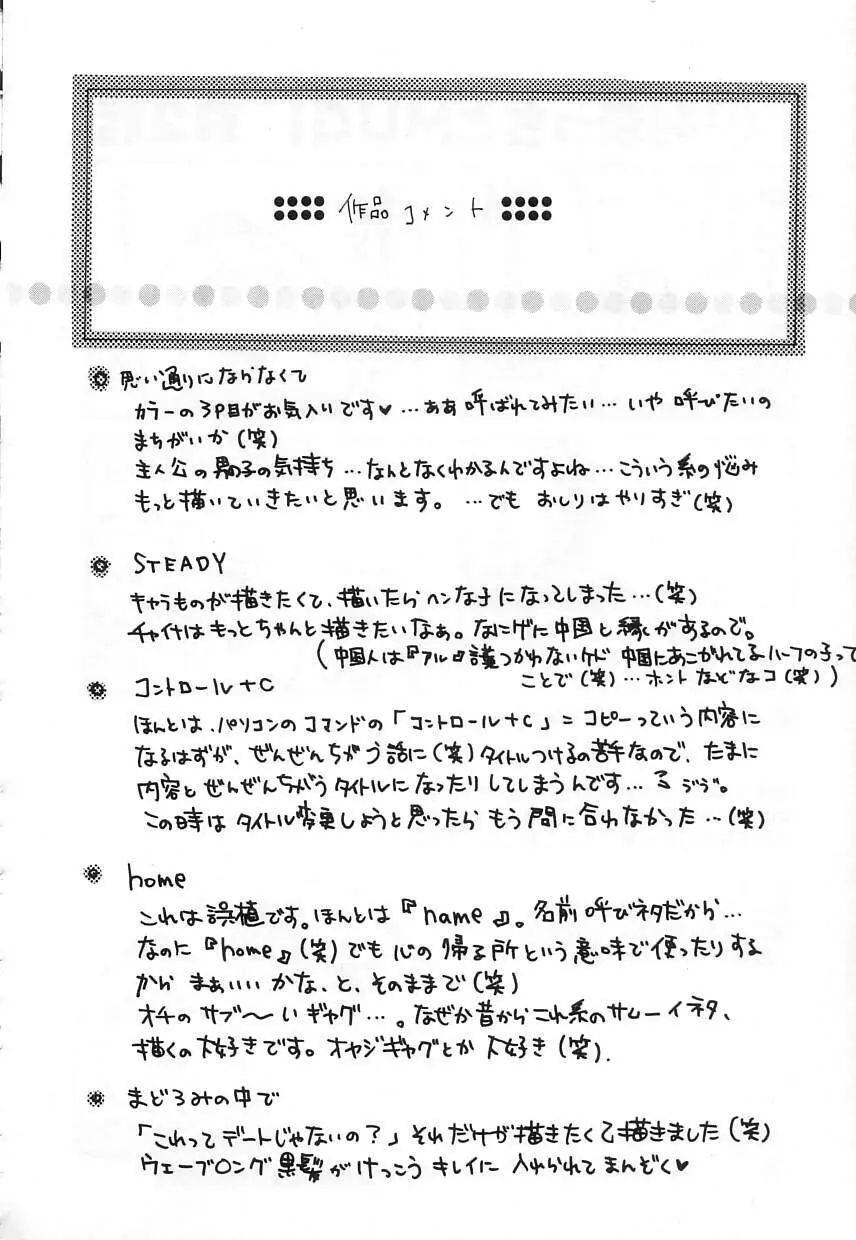 作品コメント
思い通りにならなくて
カラーの3P目がお気入りです♥…ああ 呼ばれてみたい…いや 呼びたいの
まちがいか(笑)
主人公の男の子の気持ち…なんとなくわかるんですよね…こういう系の悩み
もっと描いていきたいと思います。…でも おしりはやりすぎ(笑)
STEADY
キャラものが描きたくて、描いたらヘンな子になってしまった…(笑)
チャイナはもっとちゃんと描きたいなぁ。なにゲに中国と縁があるので。
(中国人は『アル』語つかわないケド 中国にあこがれてるハーフの子って
ことで(笑)…ホントなどなコ(笑))
コントロール+C
ほんとは、パソコンのコマンドの「コントロール+C」=コピーっていう内容に
なるはずが、ぜんぜんちがう話に(笑)タイトルつけるの苦手なので、たまに
内容とぜんぜんちがうタイトルになったりしてしまうんです…
この時はタイトル変更しようと思ったら もう間に合わなかった…(笑)
home
これは誤植です。ほんとは『name』。名前呼びネタだから…
なのに『home』(笑)でも心の帰る所という意味で使ったりする
から まぁいいかな、と、そのままで(笑)
オチのサブ〜いギャグ…。なぜか昔からこれ系のサムーイネタ、
描くの大好きです。オヤジギャグとか大好き(笑).
まどろみの中で
「これってデートじゃないの?」それだけが描きたくて描きました(笑)
ウェーブロング黒髪がけっこうキレイに入れられてまんぞく♥